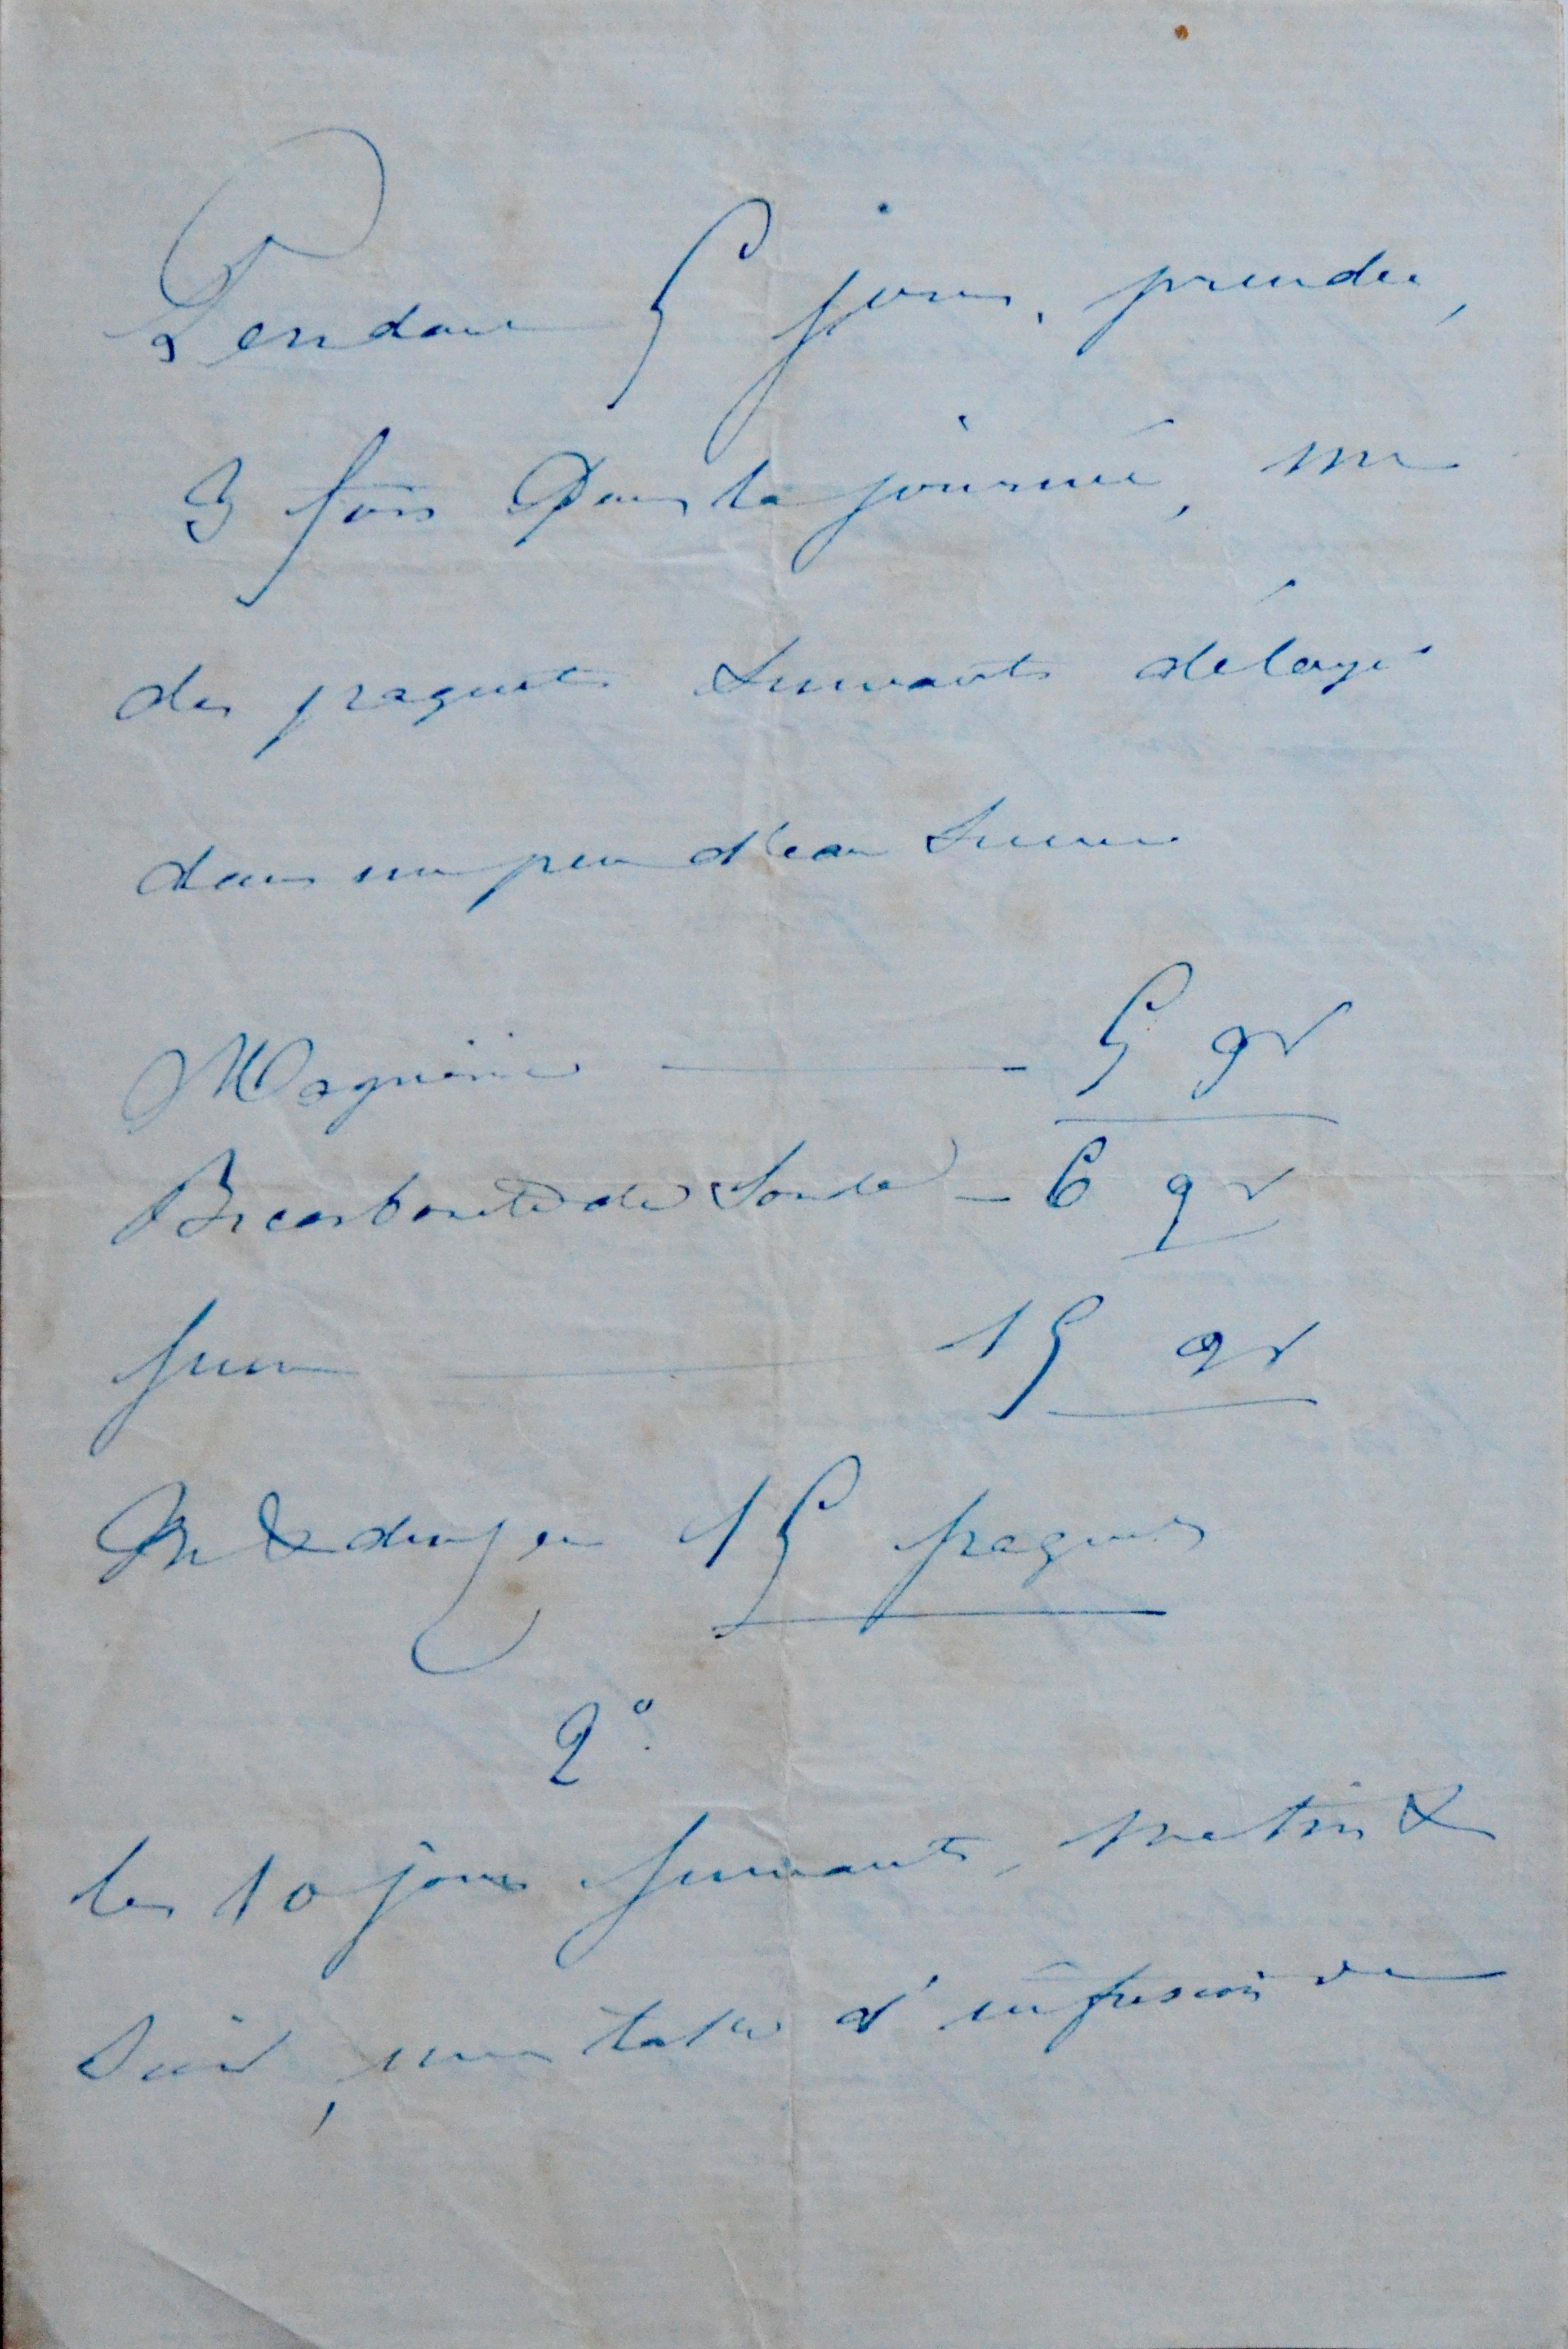 Pendant 5 jours, prendre,
3 fois Dans la journée, un
des paquets suivants délayé
dans un peu d'eau sucrée
Magnésie — 5 gr
Bicarbonate de Soude — 6 gr
Sucre — 15 gr
M & div en 15 paquets
2°
les 10 jours suivants, matin &
Soir, une tasse d'infusion de